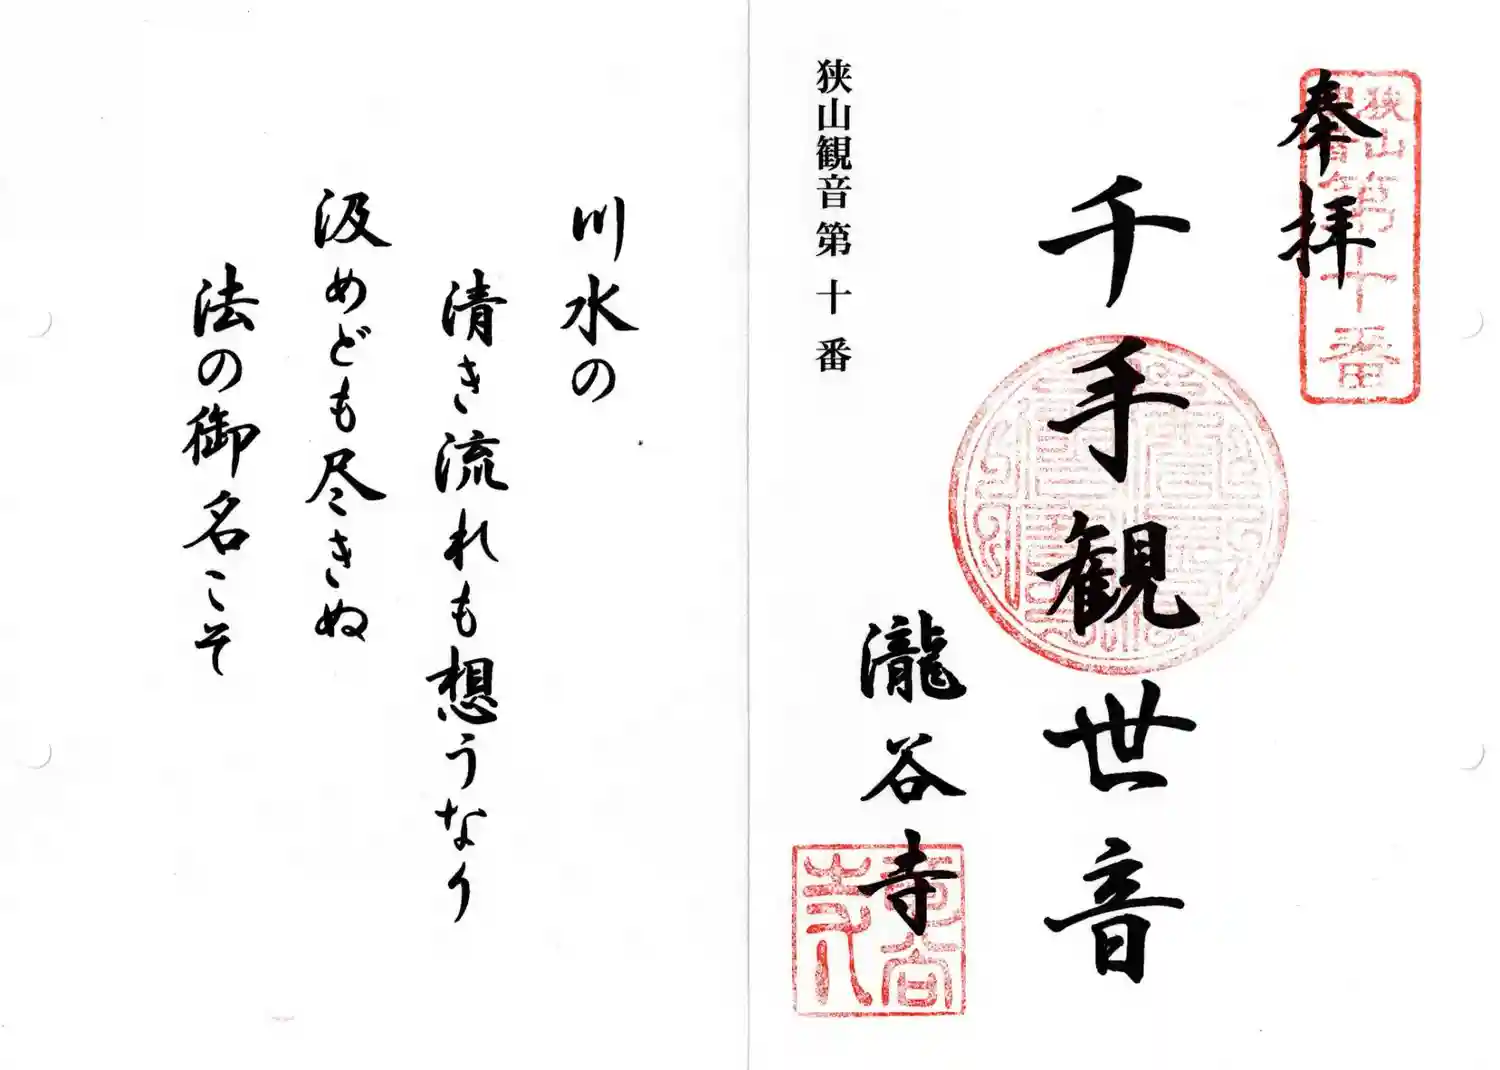 狭山観音第十番
奉拝
千手観世音
瀧谷寺
狭山観音第十番
川水の
清き流れも想うなり
汲めども尽きぬ
法の御名こそ